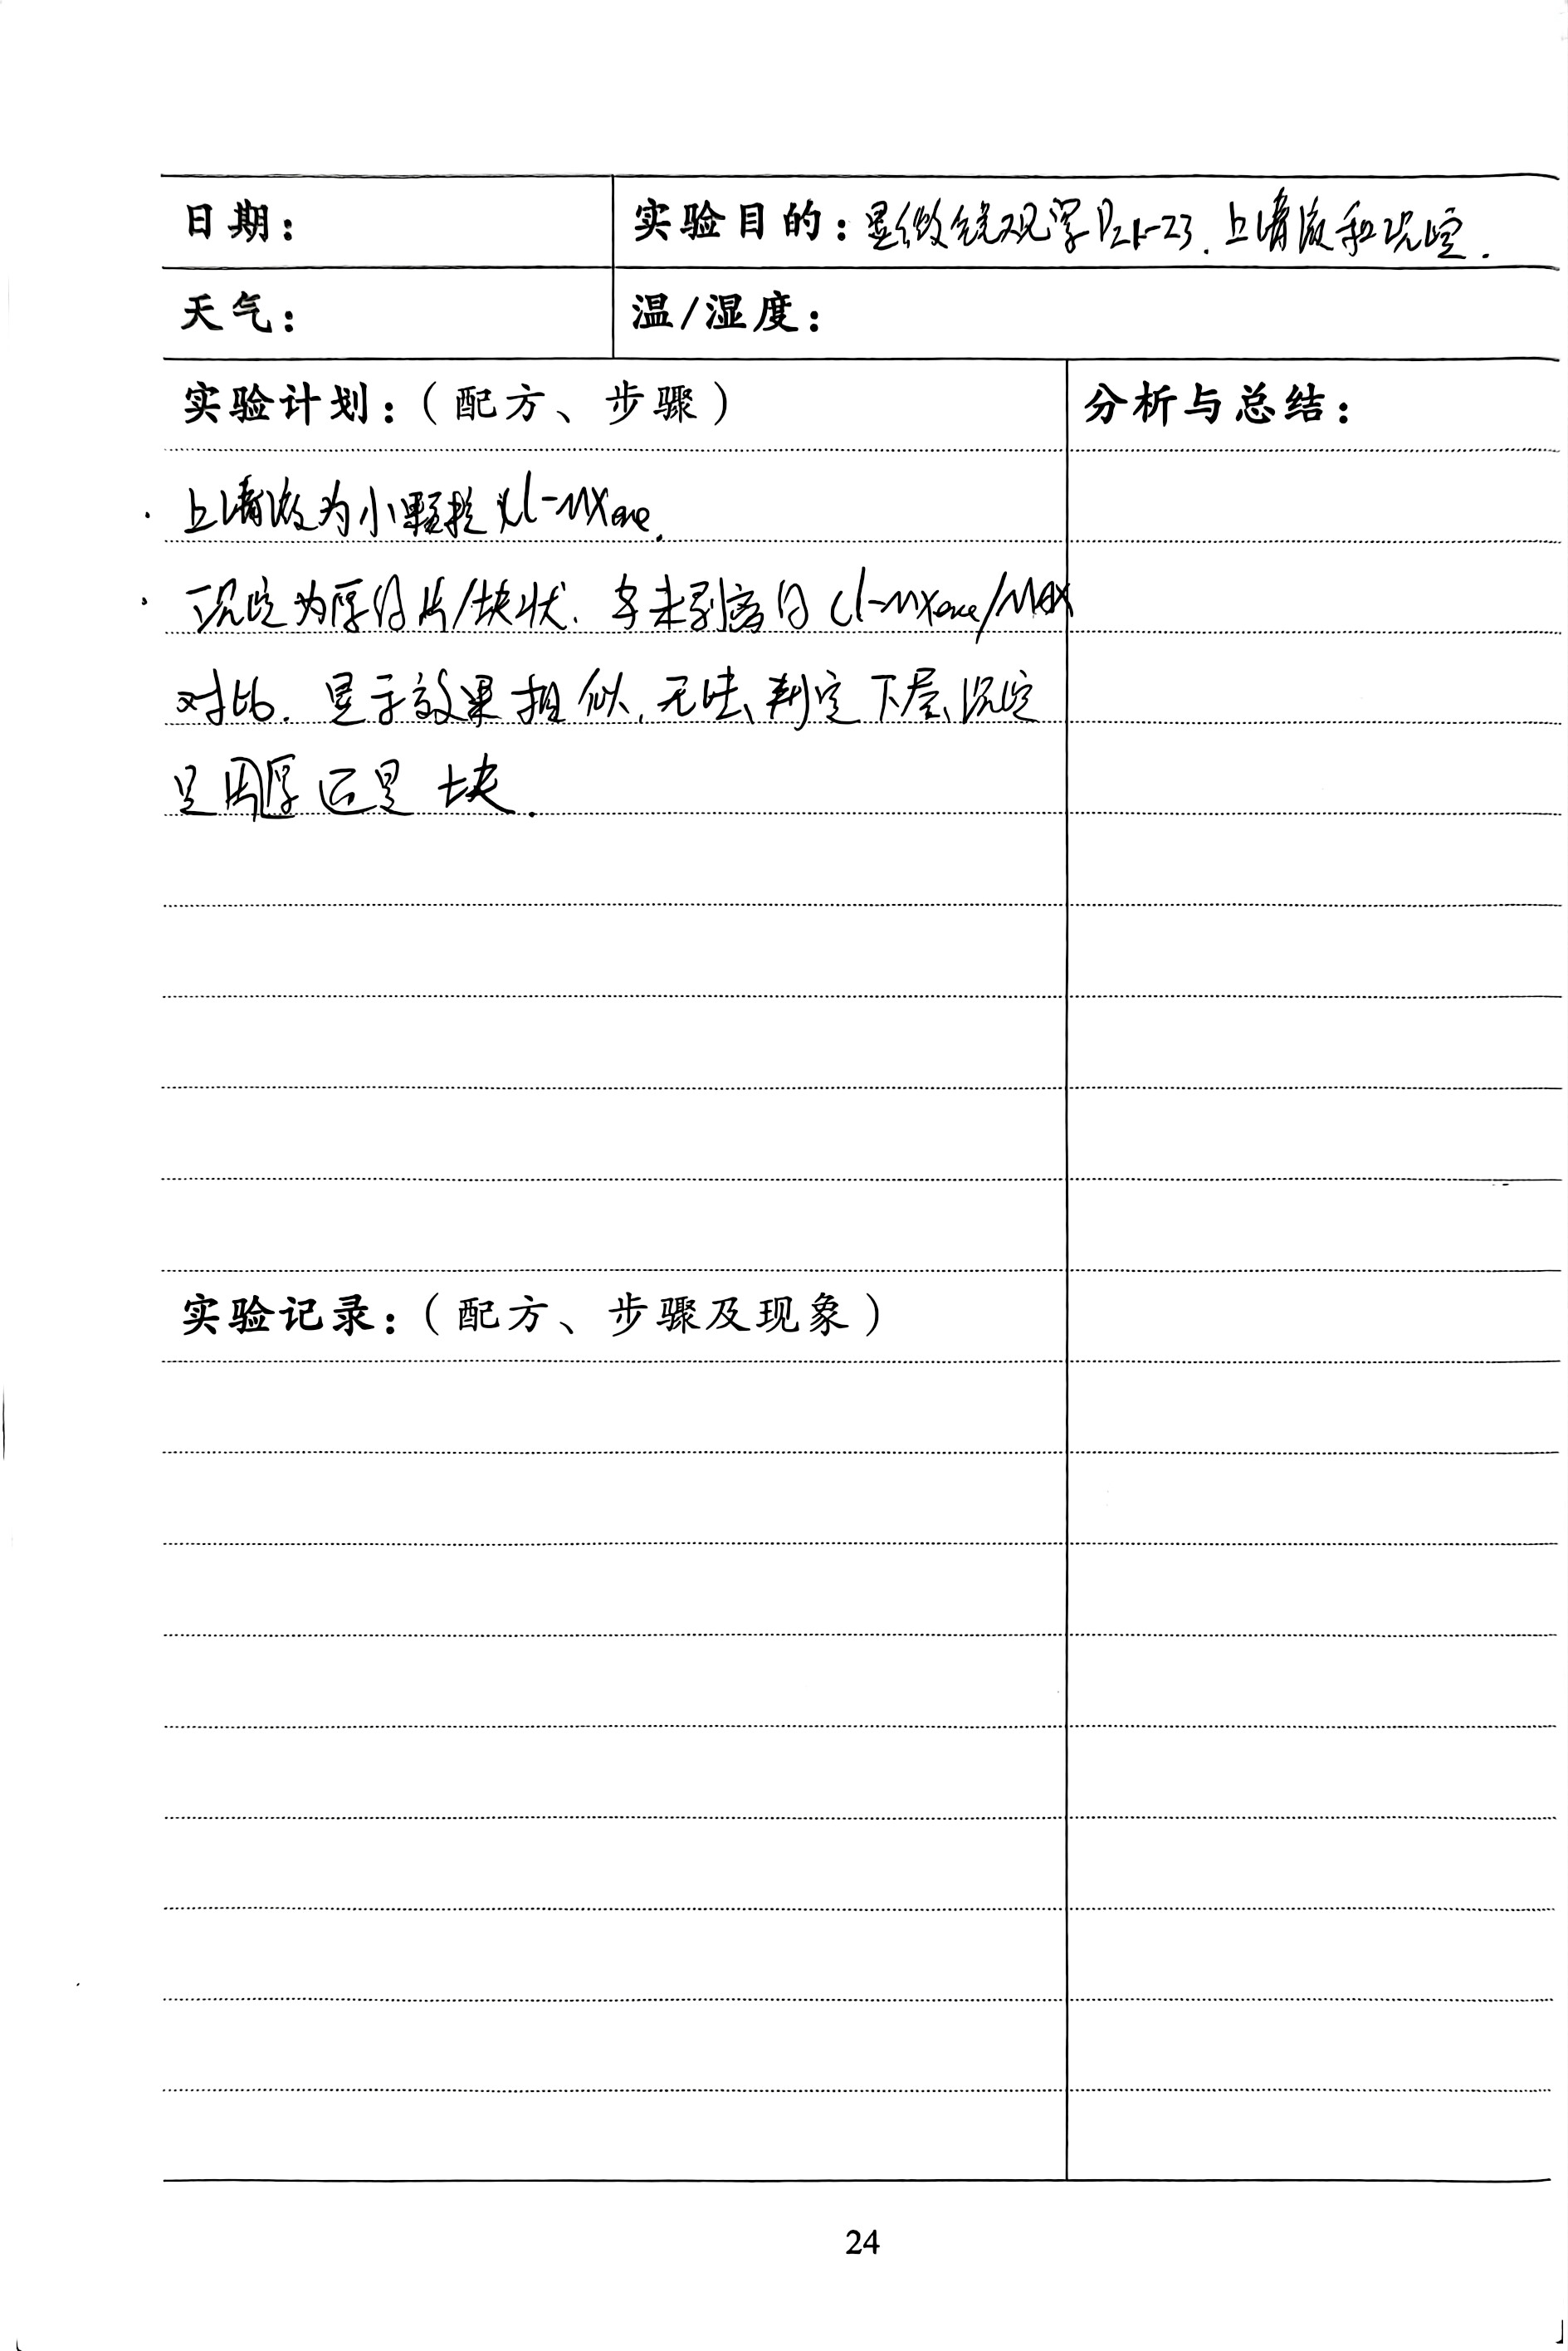 日期：
实验目的：显微镜观察P21-23.上清液和沉淀.
天气：
温/湿度：
实验计划：（配方、步骤）
分析与总结：
· 上清液为小颗粒Cl-MXene.
· 沉淀为厚的片/块状. 与未剥离的Cl-MXene/MAX
对比. 显示效果相似, 无法判定下层沉淀
是 厚还是块.
实验记录：（配方、步骤及现象）
24